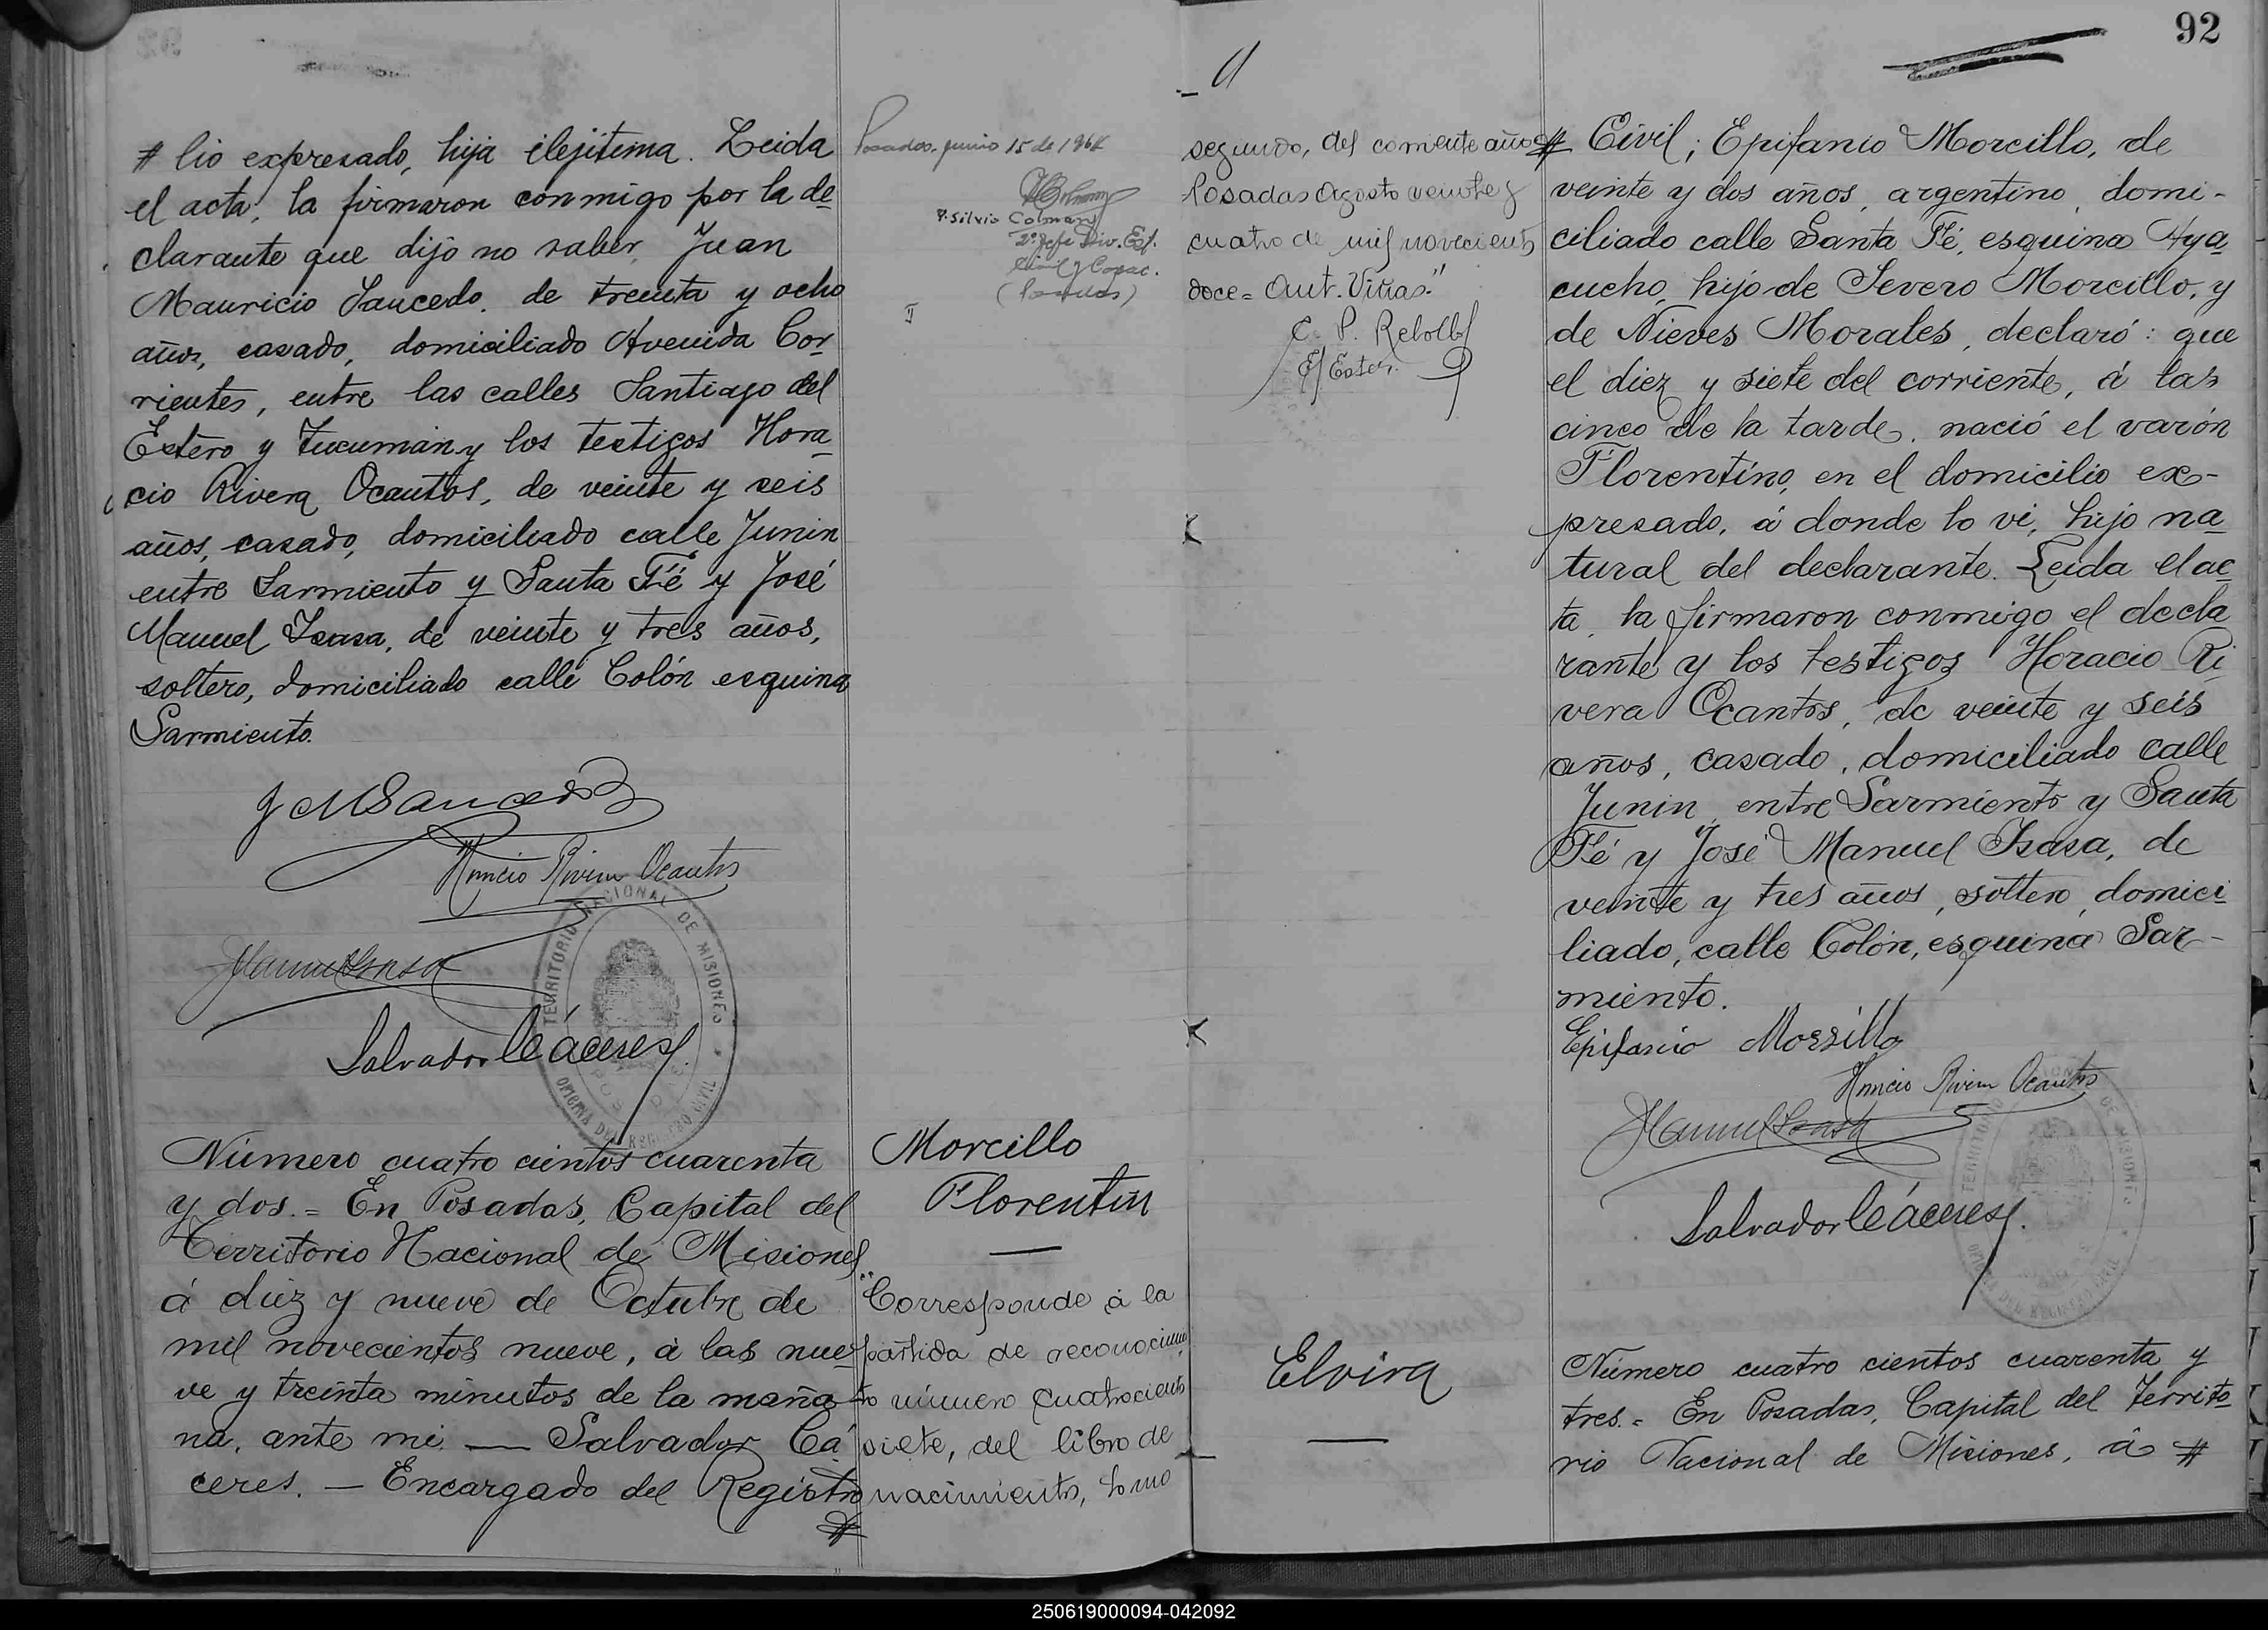 # lio expresado, hija ilejítima. Leida
el acta, la firmaron conmigo por la de
clarante que dijo no saber, Juan
Mauricio Saucedo, de treinta y ocho
años, casado, domiciliado Avenida Cor
rientes, entre las calles Santiago del
Estero y Tucumán y los testigos Hora
cio Rivera Ocantos, de veinte y seis
años, casado, domiciliado calle Junin
entre Sarmiento y Santa Fé y José
Manuel Isasa, de veinte y tres años,
soltero, domiciliado calle Colón esquina
Sarmiento.
J M Saucedo
Horacio Rivera Ocantos
JManuel Isasa
Salvador Cáceres
TERRITORIO NACIONAL DE MISIONES
OFICINA DEL REGISTRO CIVIL
POSADAS
Número cuatro cientos cuarenta
y dos.= En Posadas, Capital del
Territorio Nacional de Misiones
á diez y nueve de Octubre de
mil novecientos nueve, á las nue
ve y treinta minutos de la maña
na, ante mi — Salvador Cá
ceres. — Encargado del Registro
#
Posadas, junio 15 de 1964
P. Silvio Colman
2º Jefe Div. Est.
Civil y Capac.
(Posadas)
II
Morcillo
Florentin
"Corresponde á la
partida de reconocimien
to número cuatrocientos
siete, del libro de
nacimientos, tomo
92
segundo, del corriente año
Posadas Agosto veinte y
cuatro de mil novecientos
doce = Ant. Viñas."
C. P. Rebollo
Elvira
# Civil; Epifanio Morcillo, de
veinte y dos años, argentino, domi-
ciliado calle Santa Fé, esquina Aya
cucho, hijo de Severo Morcillo, y
de Nieves Morales, declaró: que
el diez y siete del corriente, á las
cinco de la tarde, nació el varón
Florentino, en el domicilio ex-
presado, á donde lo vi, hijo na
tural del declarante. Leida el ac
ta, la firmaron conmigo el decla
rante y los testigos Horacio Ri
vera Ocantos, de veinte y seis
años, casado, domiciliado calle
Junin, entre Sarmiento y Santa
Fé y José Manuel Isasa, de
veinte y tres años, soltero, domici
liado, calle Colón, esquina Sar-
miento.
Epifanio Morsillo
Horacio Rivera Ocantos
JManuel Isasa
Salvador Cáceres.
Número cuatro cientos cuarenta y
tres.= En Posadas, Capital del Territo
rio Nacional de Misiones, á #
250619000094-042092